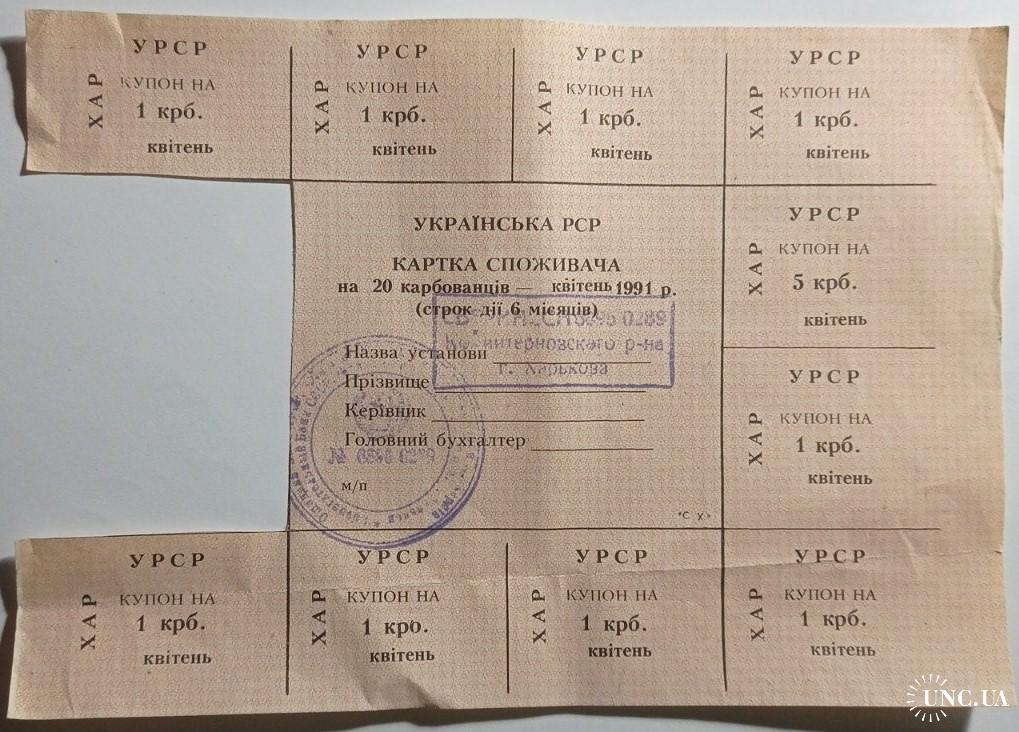 УРСР
ХАР
КУПОН НА
1 крб.
квітень
УРСР
ХАР
КУПОН НА
1 крб.
квітень
УРСР
ХАР
КУПОН НА
1 крб.
квітень
УРСР
ХАР
КУПОН НА
1 крб.
квітень
УКРАЇНСЬКА РСР
КАРТКА СПОЖИВАЧА
на 20 карбованців — квітень 1991 р.
(строк дії 6 місяців)
0289
р-на
г. Харькова
Назва установи
Прізвище
Керівник
Головний бухгалтер
№
м/п
УРСР
ХАР
КУПОН НА
5 крб.
квітень
УРСР
ХАР
КУПОН НА
1 крб.
квітень
УРСР
ХАР
КУПОН НА
1 крб.
квітень
УРСР
ХАР
КУПОН НА
1 крб.
квітень
УРСР
ХАР
КУПОН НА
1 крб.
квітень
УРСР
ХАР
КУПОН НА
1 крб.
квітень
UNC.UA